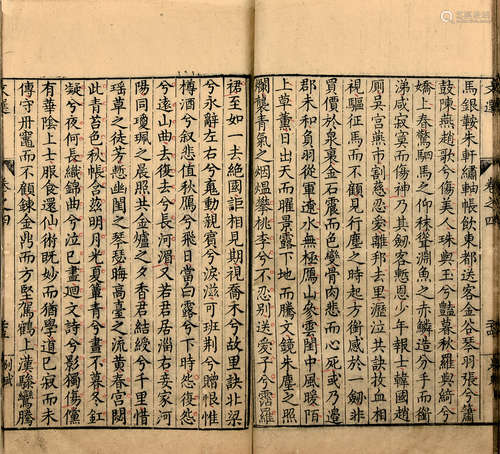 文選
卷之四
馬銀鞍朱軒繡軸帳飲東都送客金谷琴羽張兮簫
鼓陳燕趙歌兮傷美人珠與玉兮豔暮秋羅與綺兮
嬌上春驚駟馬之仰秣聳淵魚之赤鱗造分手而銜
涕咸寂寞而傷神乃其劍客慙恩少年報士韓國趙
廁吳宮燕市割慈忍愛離邦去里瀝泣共訣抆血相
視驅征馬而不顧見行塵之時起方銜感於一劔非
買價於泉裏金石震而色變骨肉悲而心死或乃邊
郡未和負羽從軍遼水無極鴈山參雲閨中風暖陌
上草薰日出天而曜景露下地而騰文鏡朱塵之照
爛襲青氣之烟熅攀桃李兮不忍別送愛子兮霑羅
裙至如一去絕國詎相見期視喬木兮故里訣北梁
兮永辭左右兮䰟動親賓兮淚滋可班荆兮贈恨惟
樽酒兮敘悲值秋鴈兮飛日當白露兮下時怨復怨
兮遠山曲去復去兮長河湄又若君居淄右妾家河
陽同瓊珮之晨照共金爐之夕香君結綬兮千里惜
瑤草之徒芳慙幽閨之琴瑟晦高臺之流黃春宮閟
此青苔色秋帳含茲明月光夏簟青兮晝不暮冬釭
凝兮夜何長織錦曲兮泣已盡迴文詩兮影獨傷儻
有華陰上士服食還仙術既妙而猶學道已寂而未
傳守丹竈而不顧鍊金鼎而方堅駕鶴上漢驂鸞騰
文選
卷之四
別賦